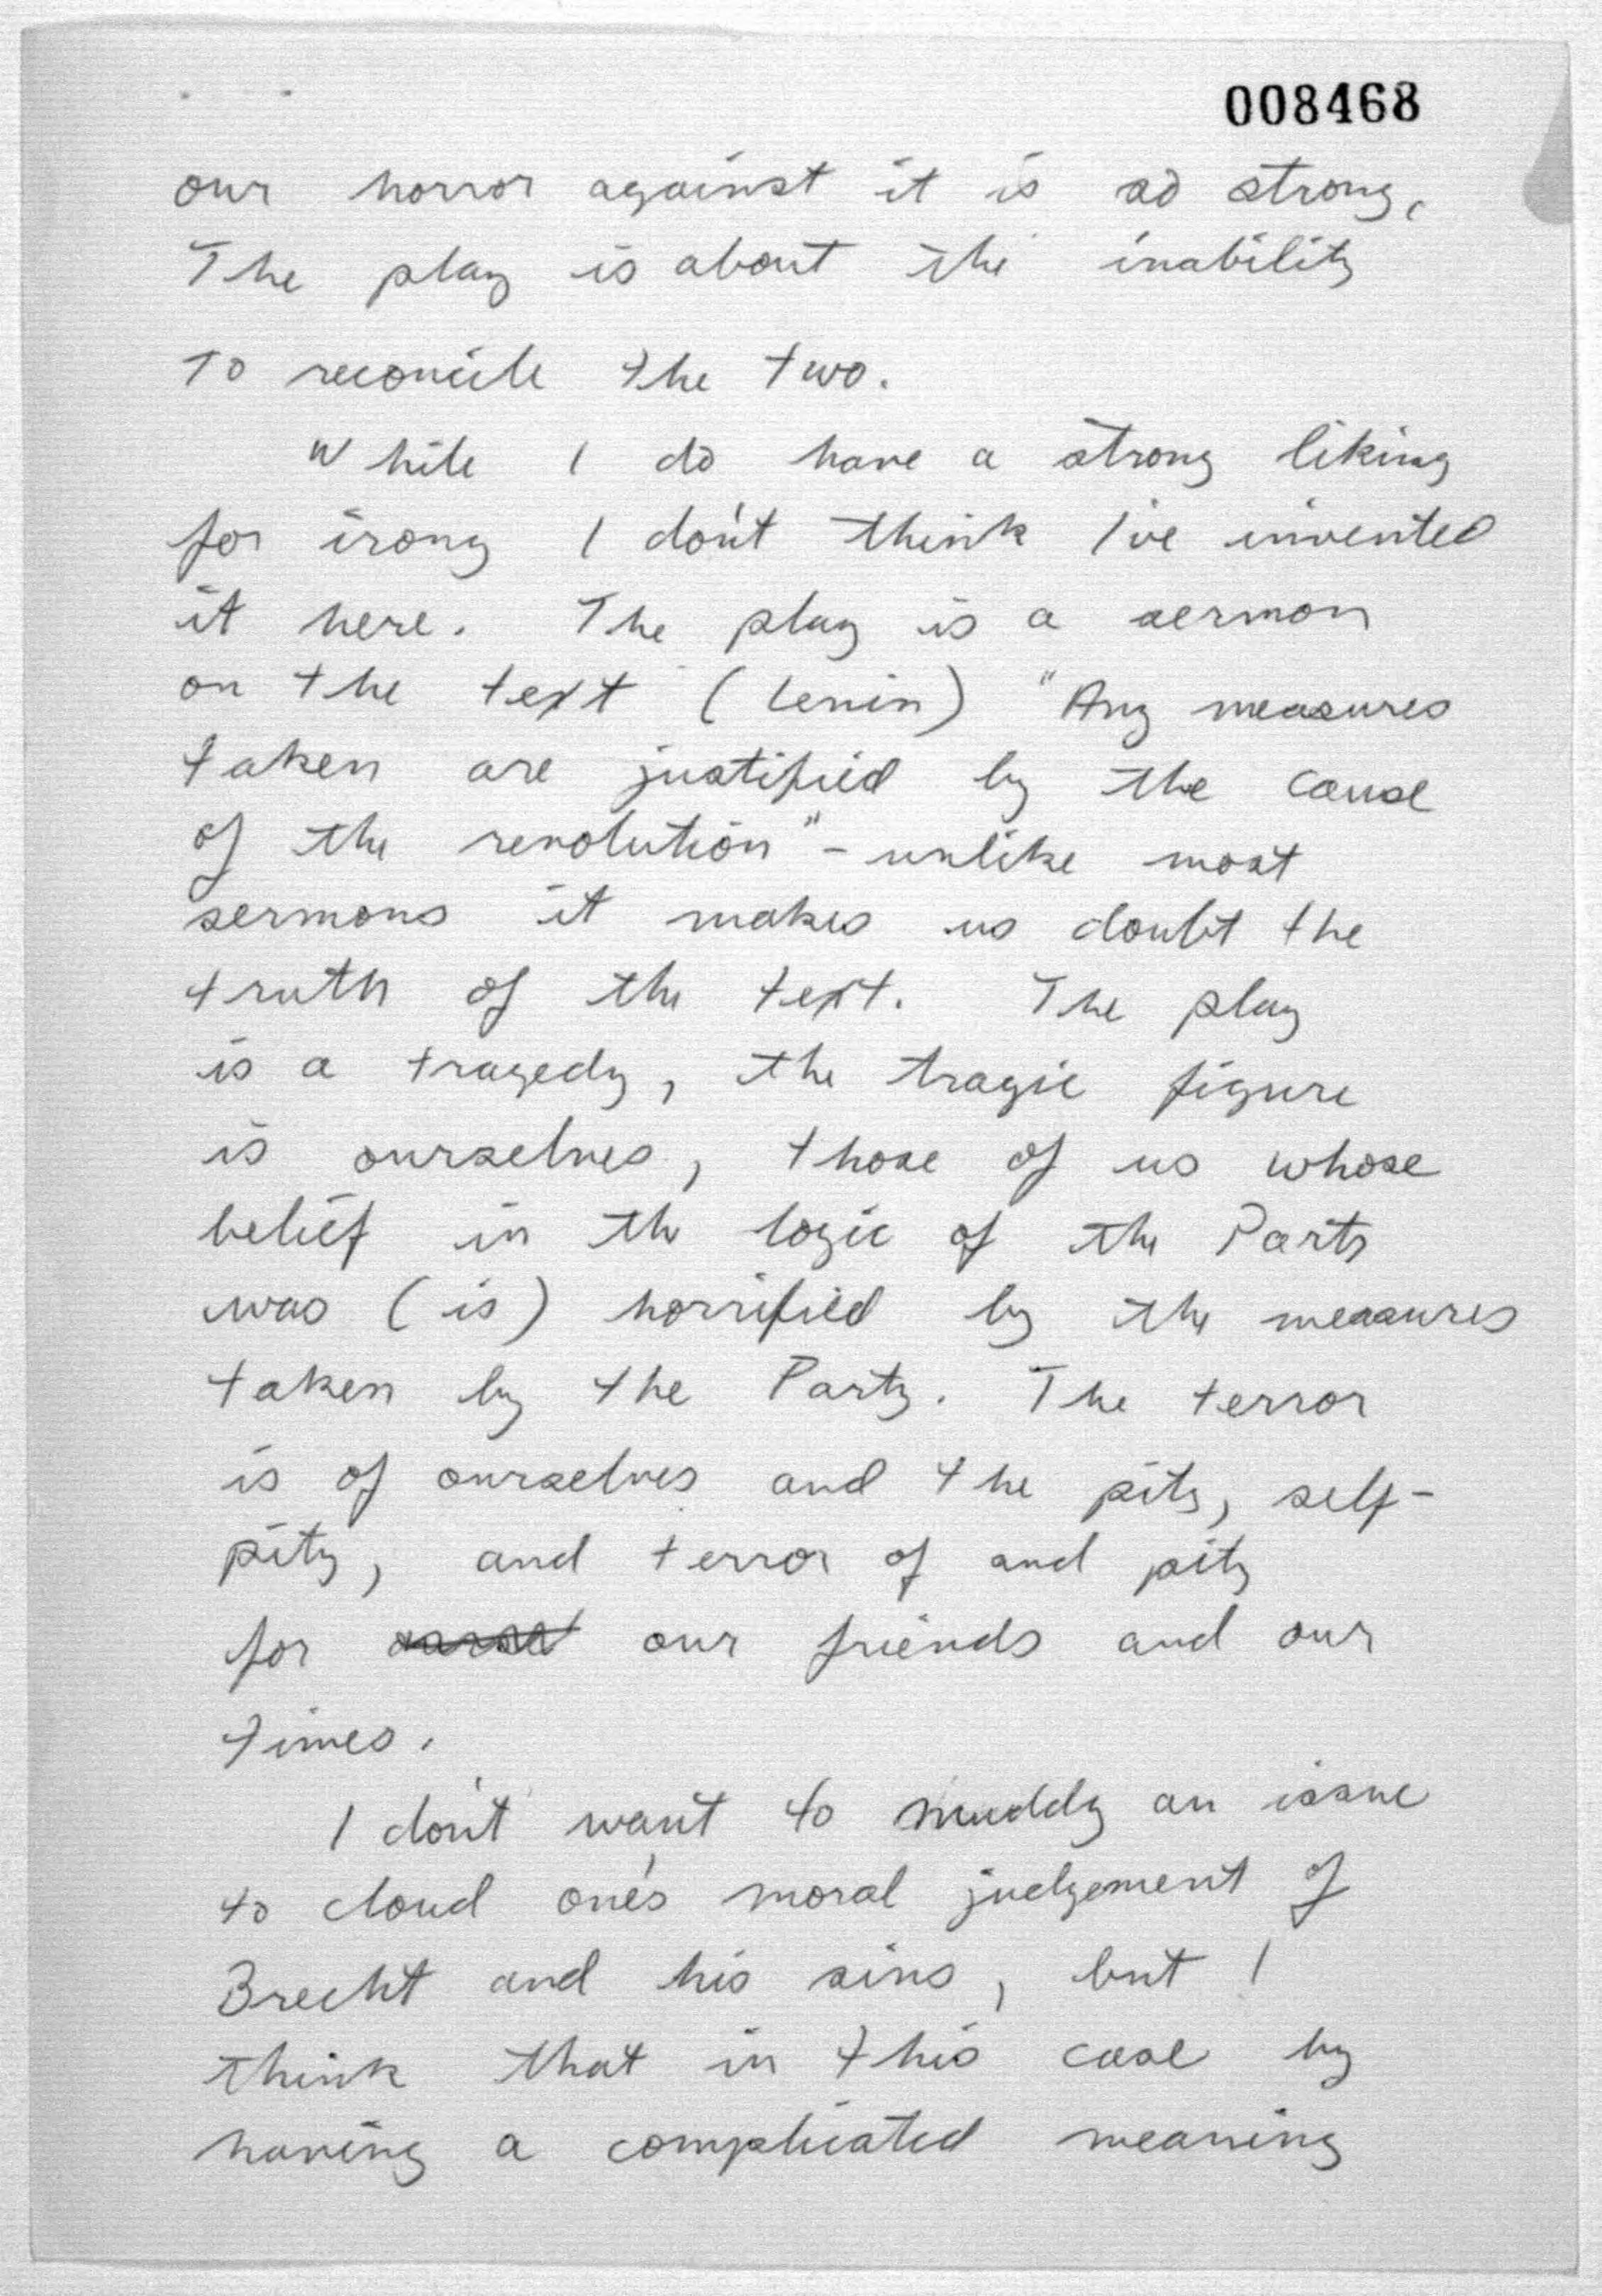 008468
our horror against it is so strong,
The play is about the inability
to reconcile the two.
While I do have a strong liking
for irony I don't think I've invented
it here. The play is a sermon
on the text (Lenin) "Any measures
taken are justified by the cause
of the revolution" - unlike most
sermons it makes us doubt the
truth of the text. The play
is a tragedy, the tragic figure
is ourselves, those of us whose
belief in the logic of the Party
was (is) horrified by the measures
taken by the Party. The terror
is of ourselves and the pity, self-
pity, and terror of and pity
for our friends and our
times.
I don't want to muddy an issue
to cloud one's moral judgement of
Brecht and his sins, but I
think that in this case by
having a complicated meaning